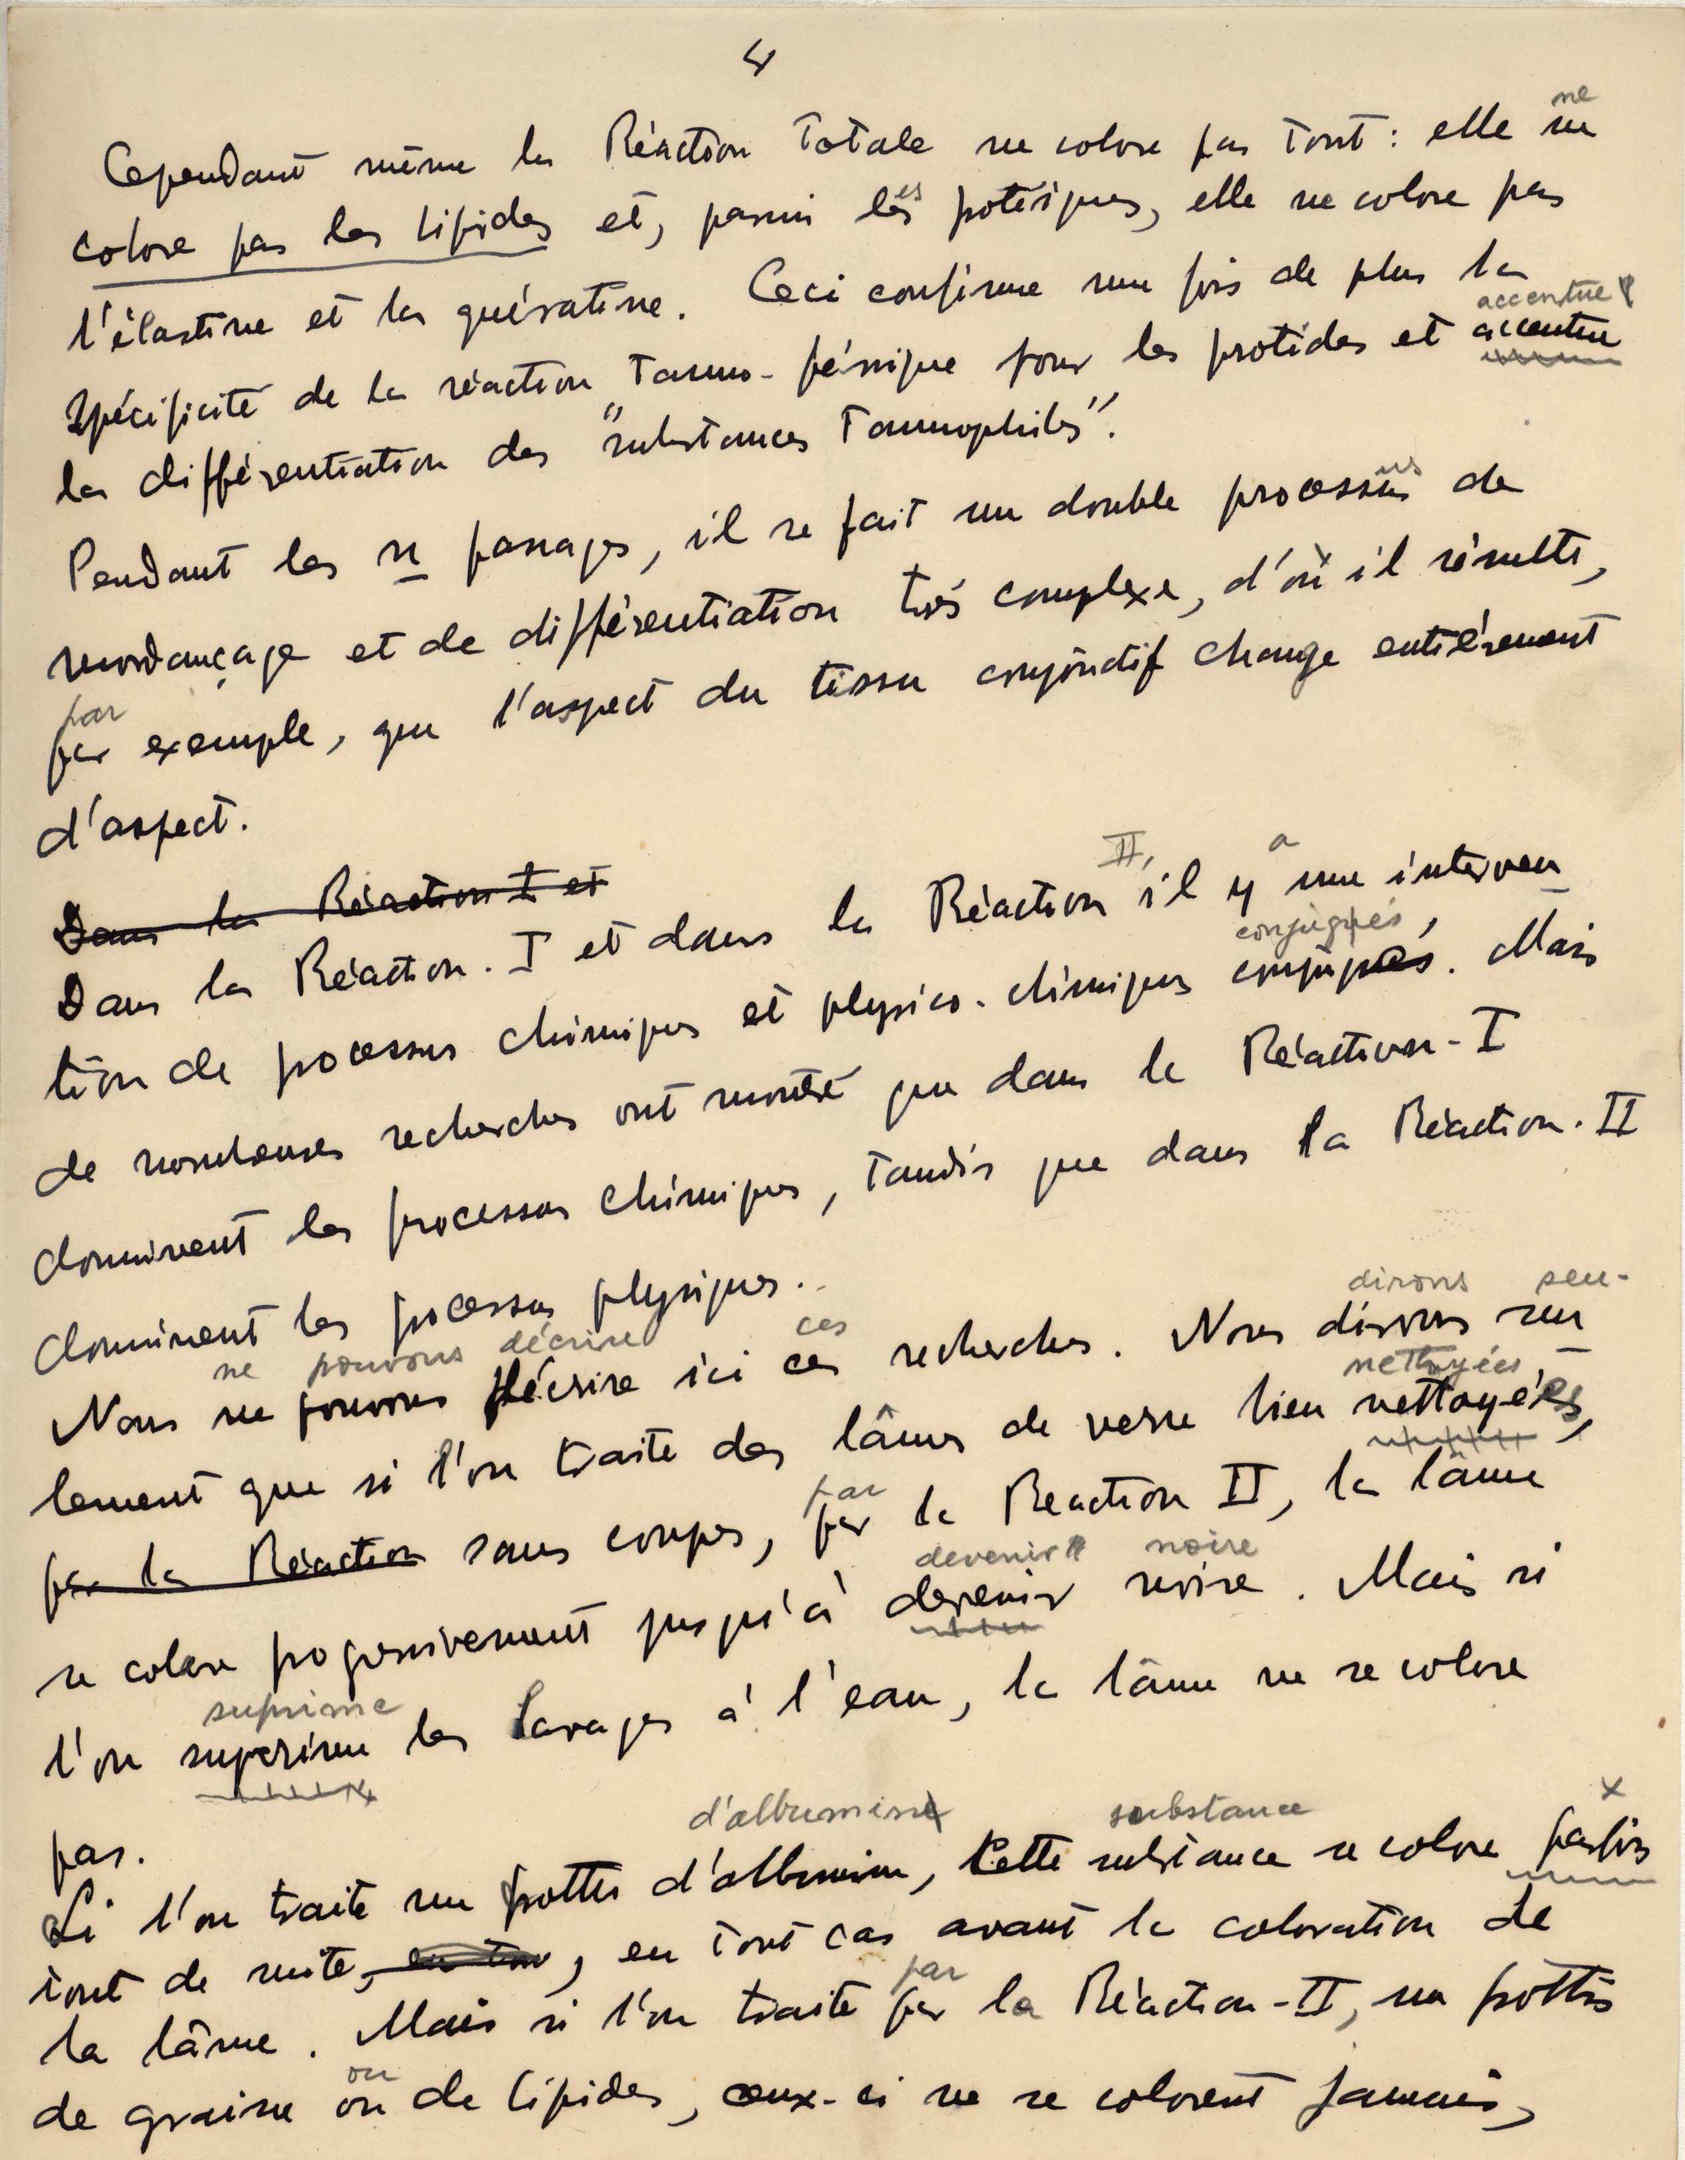 4
ne
Cependant même la Réaction Totale ne colore pas tout : elle ne
colore pas les lipides et, parmi les protéiques, elle ne colore pas
l'élastine et la quératine. Ceci confirme une fois de plus la
accentue
spécificité de la réaction Tanno-férrique pour les protides et accentue
la différentiation des "substances Tannophiles".
Pendant les n passages, il se fait un double processus de
mordançage et de différentiation très complexe, d'où il résulte,
par
par exemple, que l'aspect du tissu conjonctif change entièrement
d'aspect.
Dans la Réaction I et
II, a
Dans la Réaction-I et dans la Réaction il y une interven
conjugués,
tion de processus chimiques et physico-chimiques conjugués. Mais
de nombreuses recherches ont montré que dans la Réaction-I
dominent les processus chimiques, tandis que dans la Réaction-II
dominent les processus physiques.
dirons seu-
ne pouvons décrire ces
Nous ne pouvons décrire ici ces recherches. Nous dirons seu
nettoyées,
lement que si l'on traite des lâmes de verre bien nettoyées,
par
par la Réaction sans coupes, par la Reaction II, la lâme
devenir noire
se colore progressivement jusqu'à devenir noire. Mais si
suprime
l'on suprime les lavages à l'eau, la lâme ne se colore
pas.
d'albumine substance x
Si l'on traite un frottis d'albumine, cette substance se colore parfois
tout de suite, en tou, en tout cas avant la coloration de
par
la lâme. Mais si l'on traite par la Réaction-II, un frottis
ou
de graisse ou de lipides, ceux-ci ne se colorent jamais,